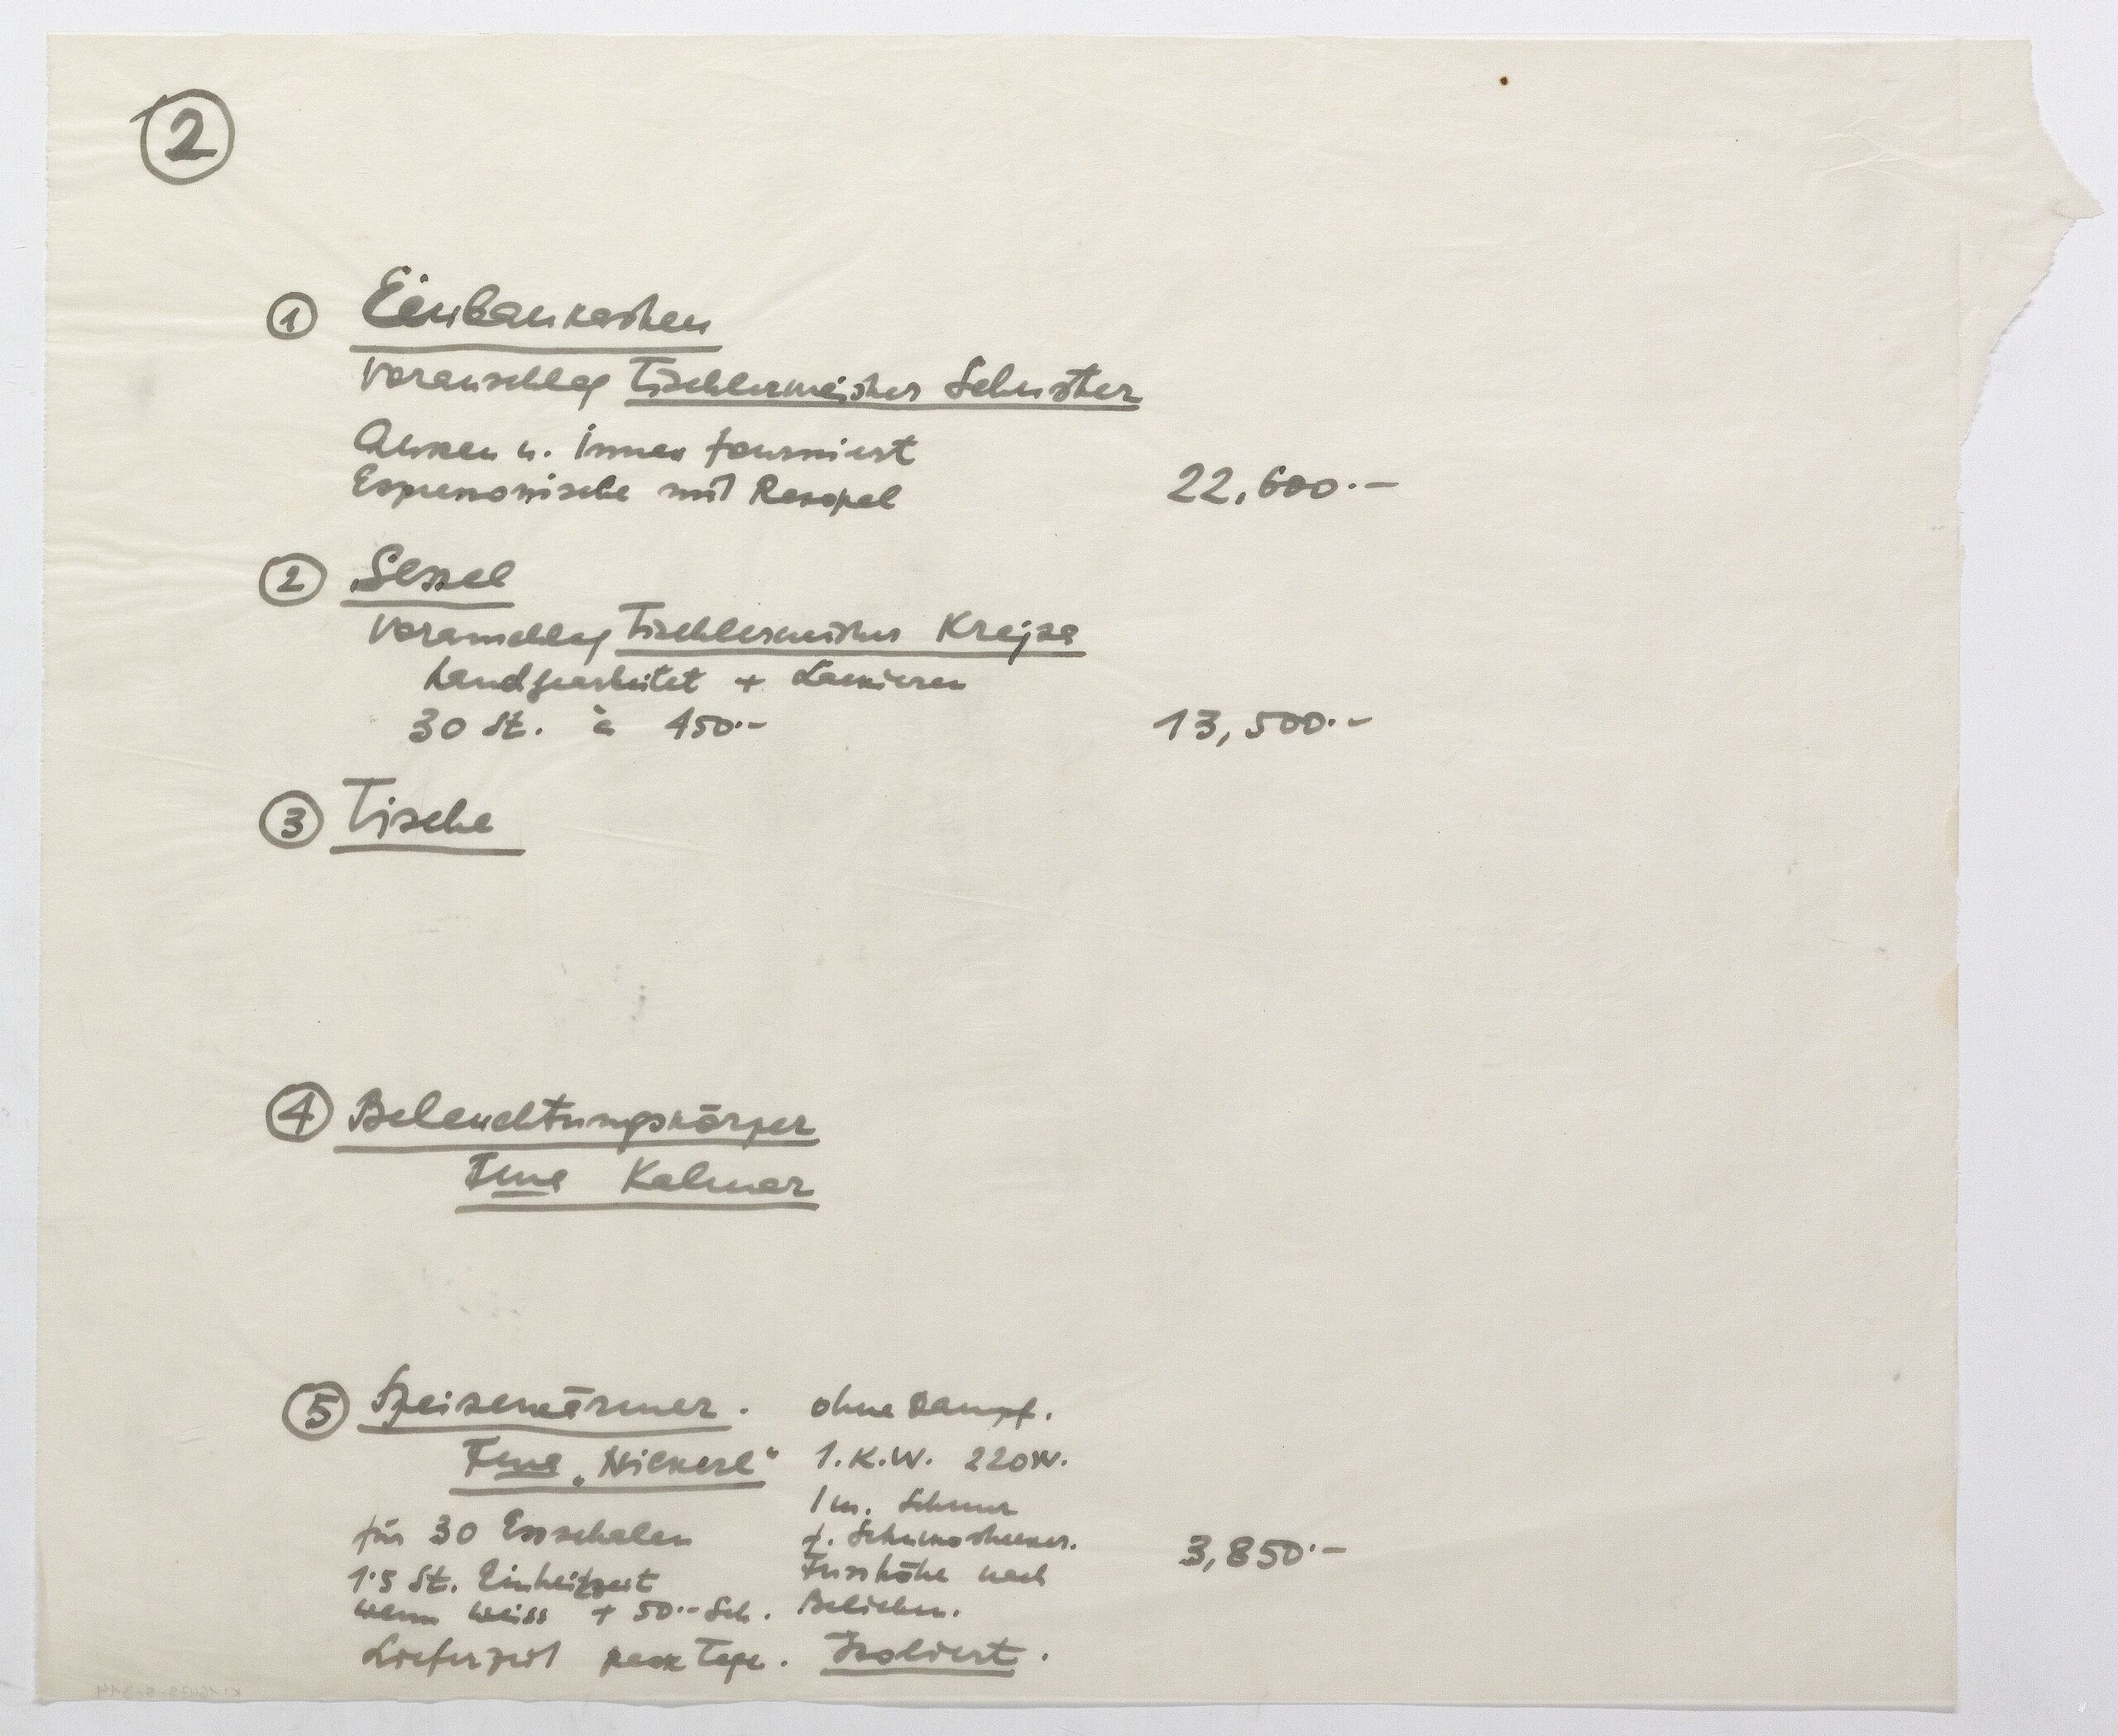 2
1 Einbaukasten
Voranschlag Tischlermeister Schuster
Aussen u. innen fourniert
Espressonische mit Resopal 22,600.-
2 Sessel
Voranschlag Tischlermeister Krejza
handgearbeitet + Lackieren
30 St. à 450.- 13,500.-
3 Tische
4 Beleuchtungskörper
Firma Kalmar
5 Speisewärmer. ohne Dampf.
Firma „Nickerl“ 1.K.W. 220W.
1 m. Schnur
für 30 Essschalen f. Schukostecker.
3,850.-
1.5 St. Einheizzeit Fusshöhe nach
wenn weiss + 50.- Sch. Belieben.
Lieferzeit Tage. Isoliert.